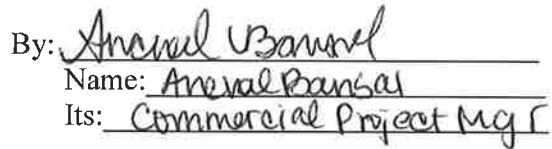 By: Aneval Bansal
Name: Aneval Bansal
Its: Commercial Project Mgr